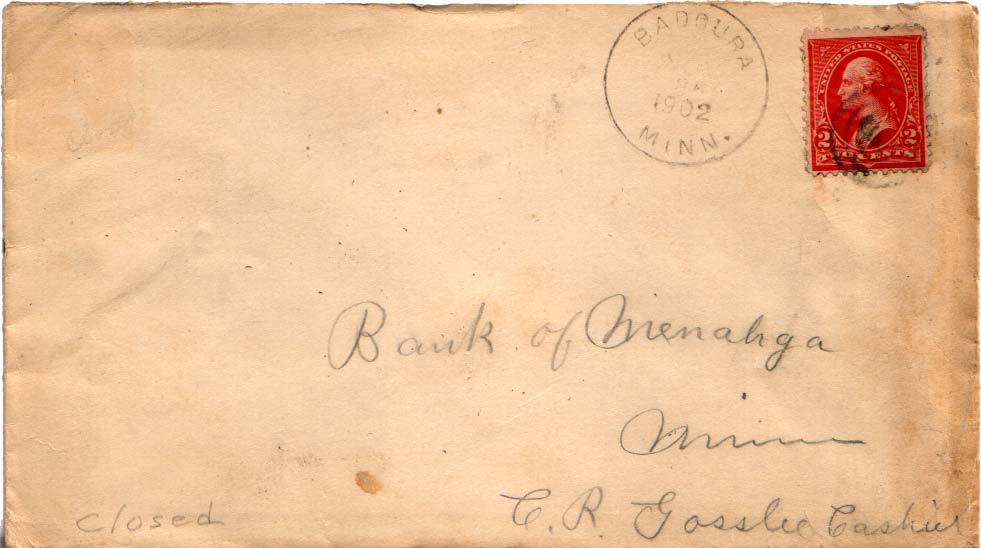 BADOURA
24
1902
MINN.
UNITED STATES POSTAGE
2 2
TWO CENTS
Bank of Menahga
Minn
C. R. Gosslee Cashier
Closed